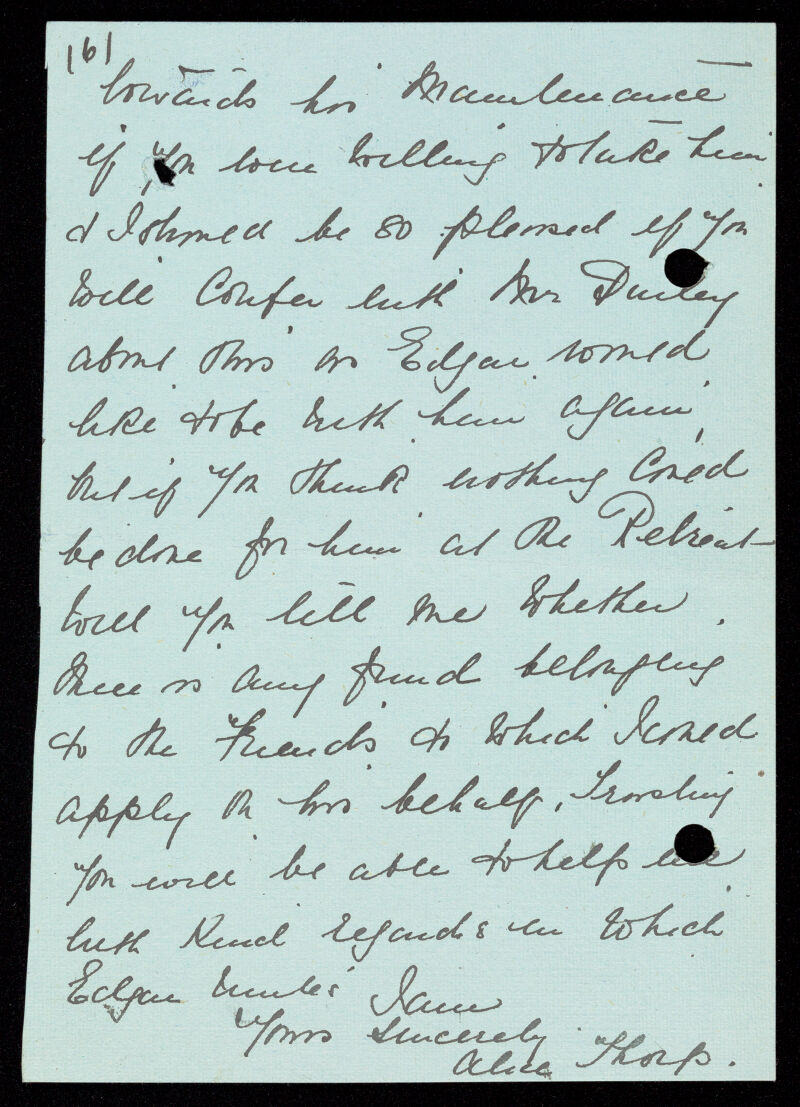 161
towards his Maintenance
if you were willing to take him
& I should be so pleased if you
will Confer with Mr
about this as Edgar would
like to be with him again,
but if you think nothing could
be done for him at the Retreat
will you tell me whether
there is any fund belonging
to the "Friends" to which I could
apply on his behalf. Trusting
you will be able to help me
with Kind regards in which
Edgar unites I am
Yours Sincerely
Alice Thorp.